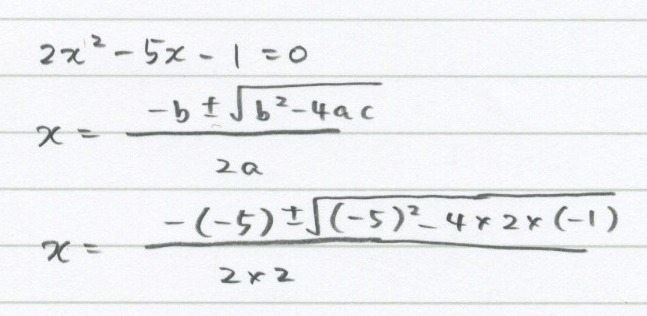 2x² - 5x - 1 = 0
x = (-b ± √(b² - 4ac)) / 2a
x = (-(-5) ± √((-5)² - 4 × 2 × (-1))) / 2 × 2